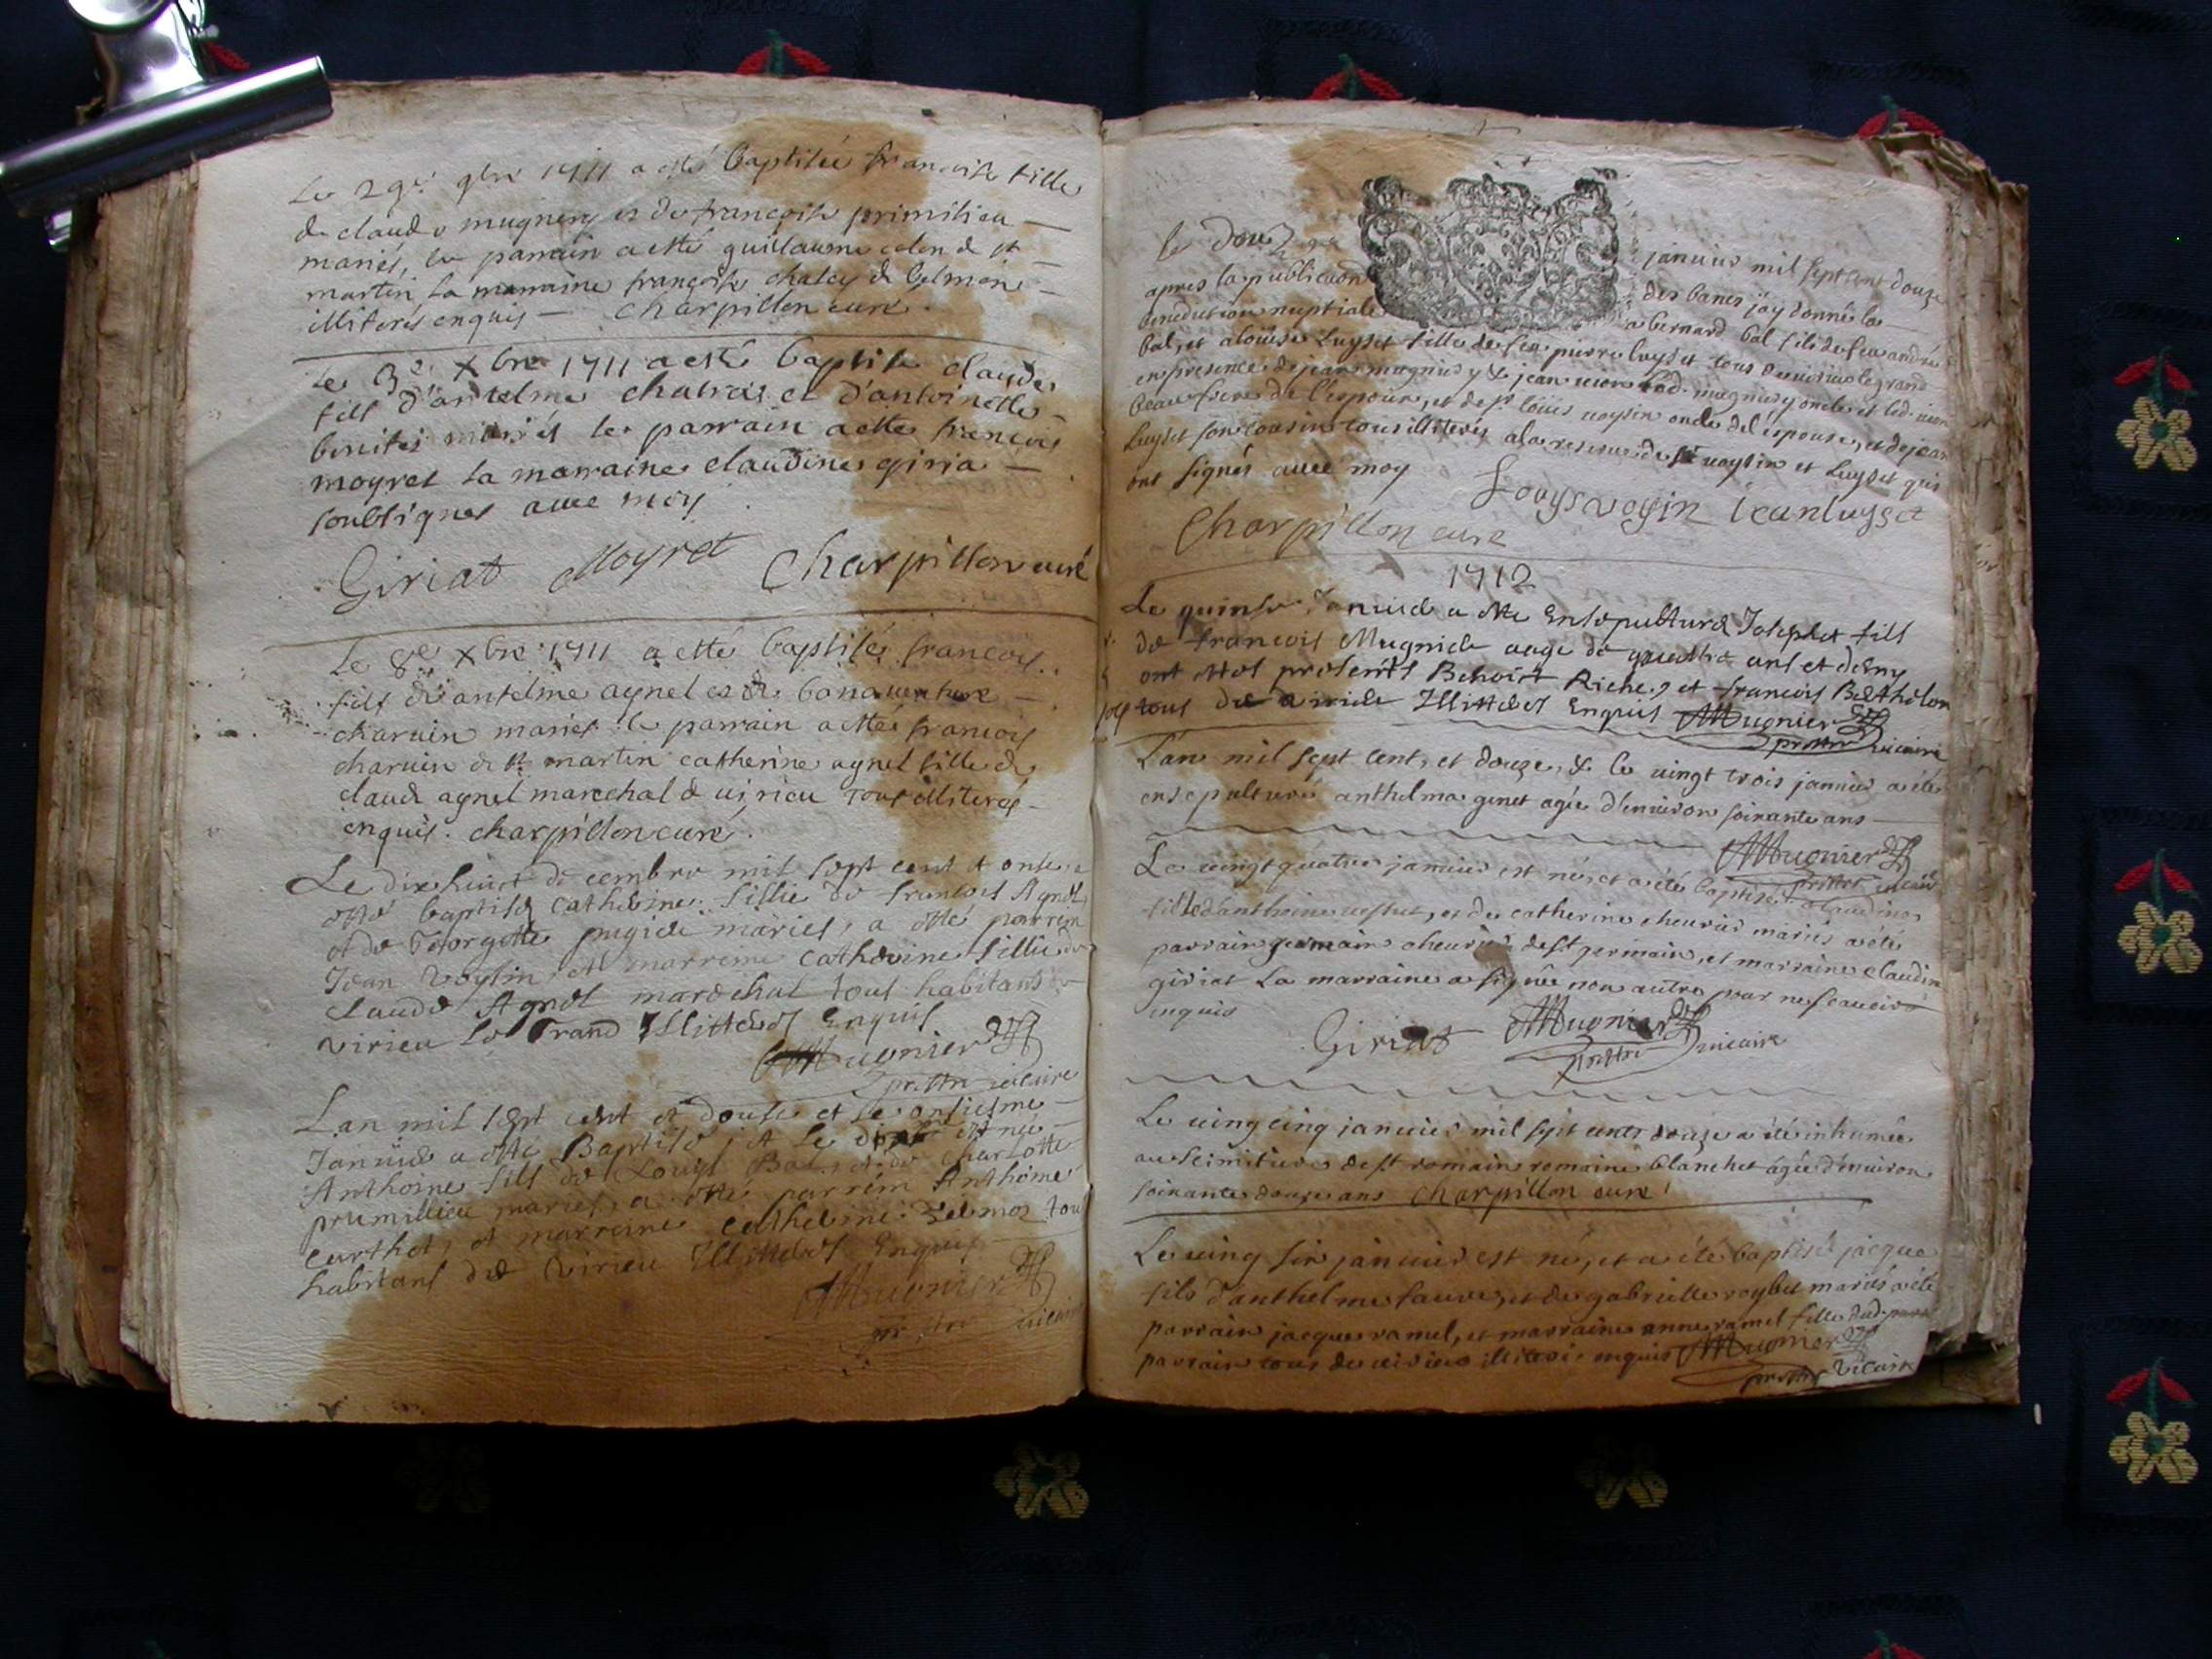 Le 29e 9bre 1711 a esté baptisée francoise fille
de claude mugnery et de francoise primilieu
mariés, le parrain a esté guillaume colon de st
martin la marraine francoise chaley de belmon
illiterés enquis charpillon curé.
Le 3e Xbre 1711 a esté baptisé claude
fils d'antelme chatrás et d'antoinette
benites mariés le parrain a esté francois
moyret la marraine claudine giria
soubsignes avec moy
Giriat Moyret Charpillon curé
Le 8e Xbre 1711 a esté baptisé francoys
fils de antelme aynel et de bonaventure
charvin mariés le parrain a esté francoys
charvin de st martin catherine aynel fille de
claude aynel marechal de virieu tous illiterés
enquis. charpillon curé.
Le dix huict decembre mil sept cent et onse a
esté baptisé catherine fillie de francois Agnel
et de Georgette pugide mariés, a esté parrein
Jean Voysin et marreine catherine fillie de
claude Agnel marechal tous habitans de
virieu le Grand Illitteres Enquis
Mugnier
prestre vicaire
Lan mil sept cent et douse et le onsiesme
Janvier a esté Baptisé, et le est né
Anthoine fils de Louys Bal et de charlotte
prumillieu mariés, a esté parrein Anthoine
curthet, et marreine catherine tous
habitans de virieu Illitteres Enquis
Mugnier
prestre vicaire
le douze janvier mil sept cent douze
apres la publicaon des bancs j'ay donné la
benediction nuptiale a bernard bal fils de feu andré
bal, et aloüise Luyset fille de feu pierre luyset tous de virieu le grand
en presence de jean mugniery & jean vion led. mugniery oncle et led. vion
beau frere de l'espoux, et de sr loüis voysin oncle del'espouse, et de jean
Luyset son cousin tous illiterés a la reserve de sr voysin et Luyset qui
ont signés avec moy Louys voysin Jean luyset
Charpillon curé
1712
Le quinse Janvier a esté Ensepulturé Joseph fils
de francois Mugnier aagé de quattre ans et demy
ont estes presents Benoict Riche, et francois Berthelon
tous de virieu Illitteres Enquis Mugnier
prestre vicaire
L'an mil sept cent, et douze, & le vingt trois janvier a été
ensepulturé anthelma genet agée d'environ soixante ans
Mugnier
prestre vicaire
Le vingt quatre janvier est née et a été baptisée claudine
fille d'anthoine, et de catherine chevrier mariés a été
parrain germain chevrier de st germain, et marraine claudine
giriat La marraine a signée non autre pour ne scavoir
enquis
Giriat Mugnier
prestre vicaire
Le vingt cinq janvier mil sept cents douze a été inhumée
au Cimitiere de st romain romaine blanchet âgée d'environ
soixante douze ans Charpillon curé
Le vingt six janvier est né, et a été baptisé jacque
fils d'anthelme fauvre, et de gabrielle roybet mariés a été
parrain jacque ramel, et marraine anne ramel fille dud.
parrain tous de virieu illiteré enquis Mugnier
prestre Vicaire